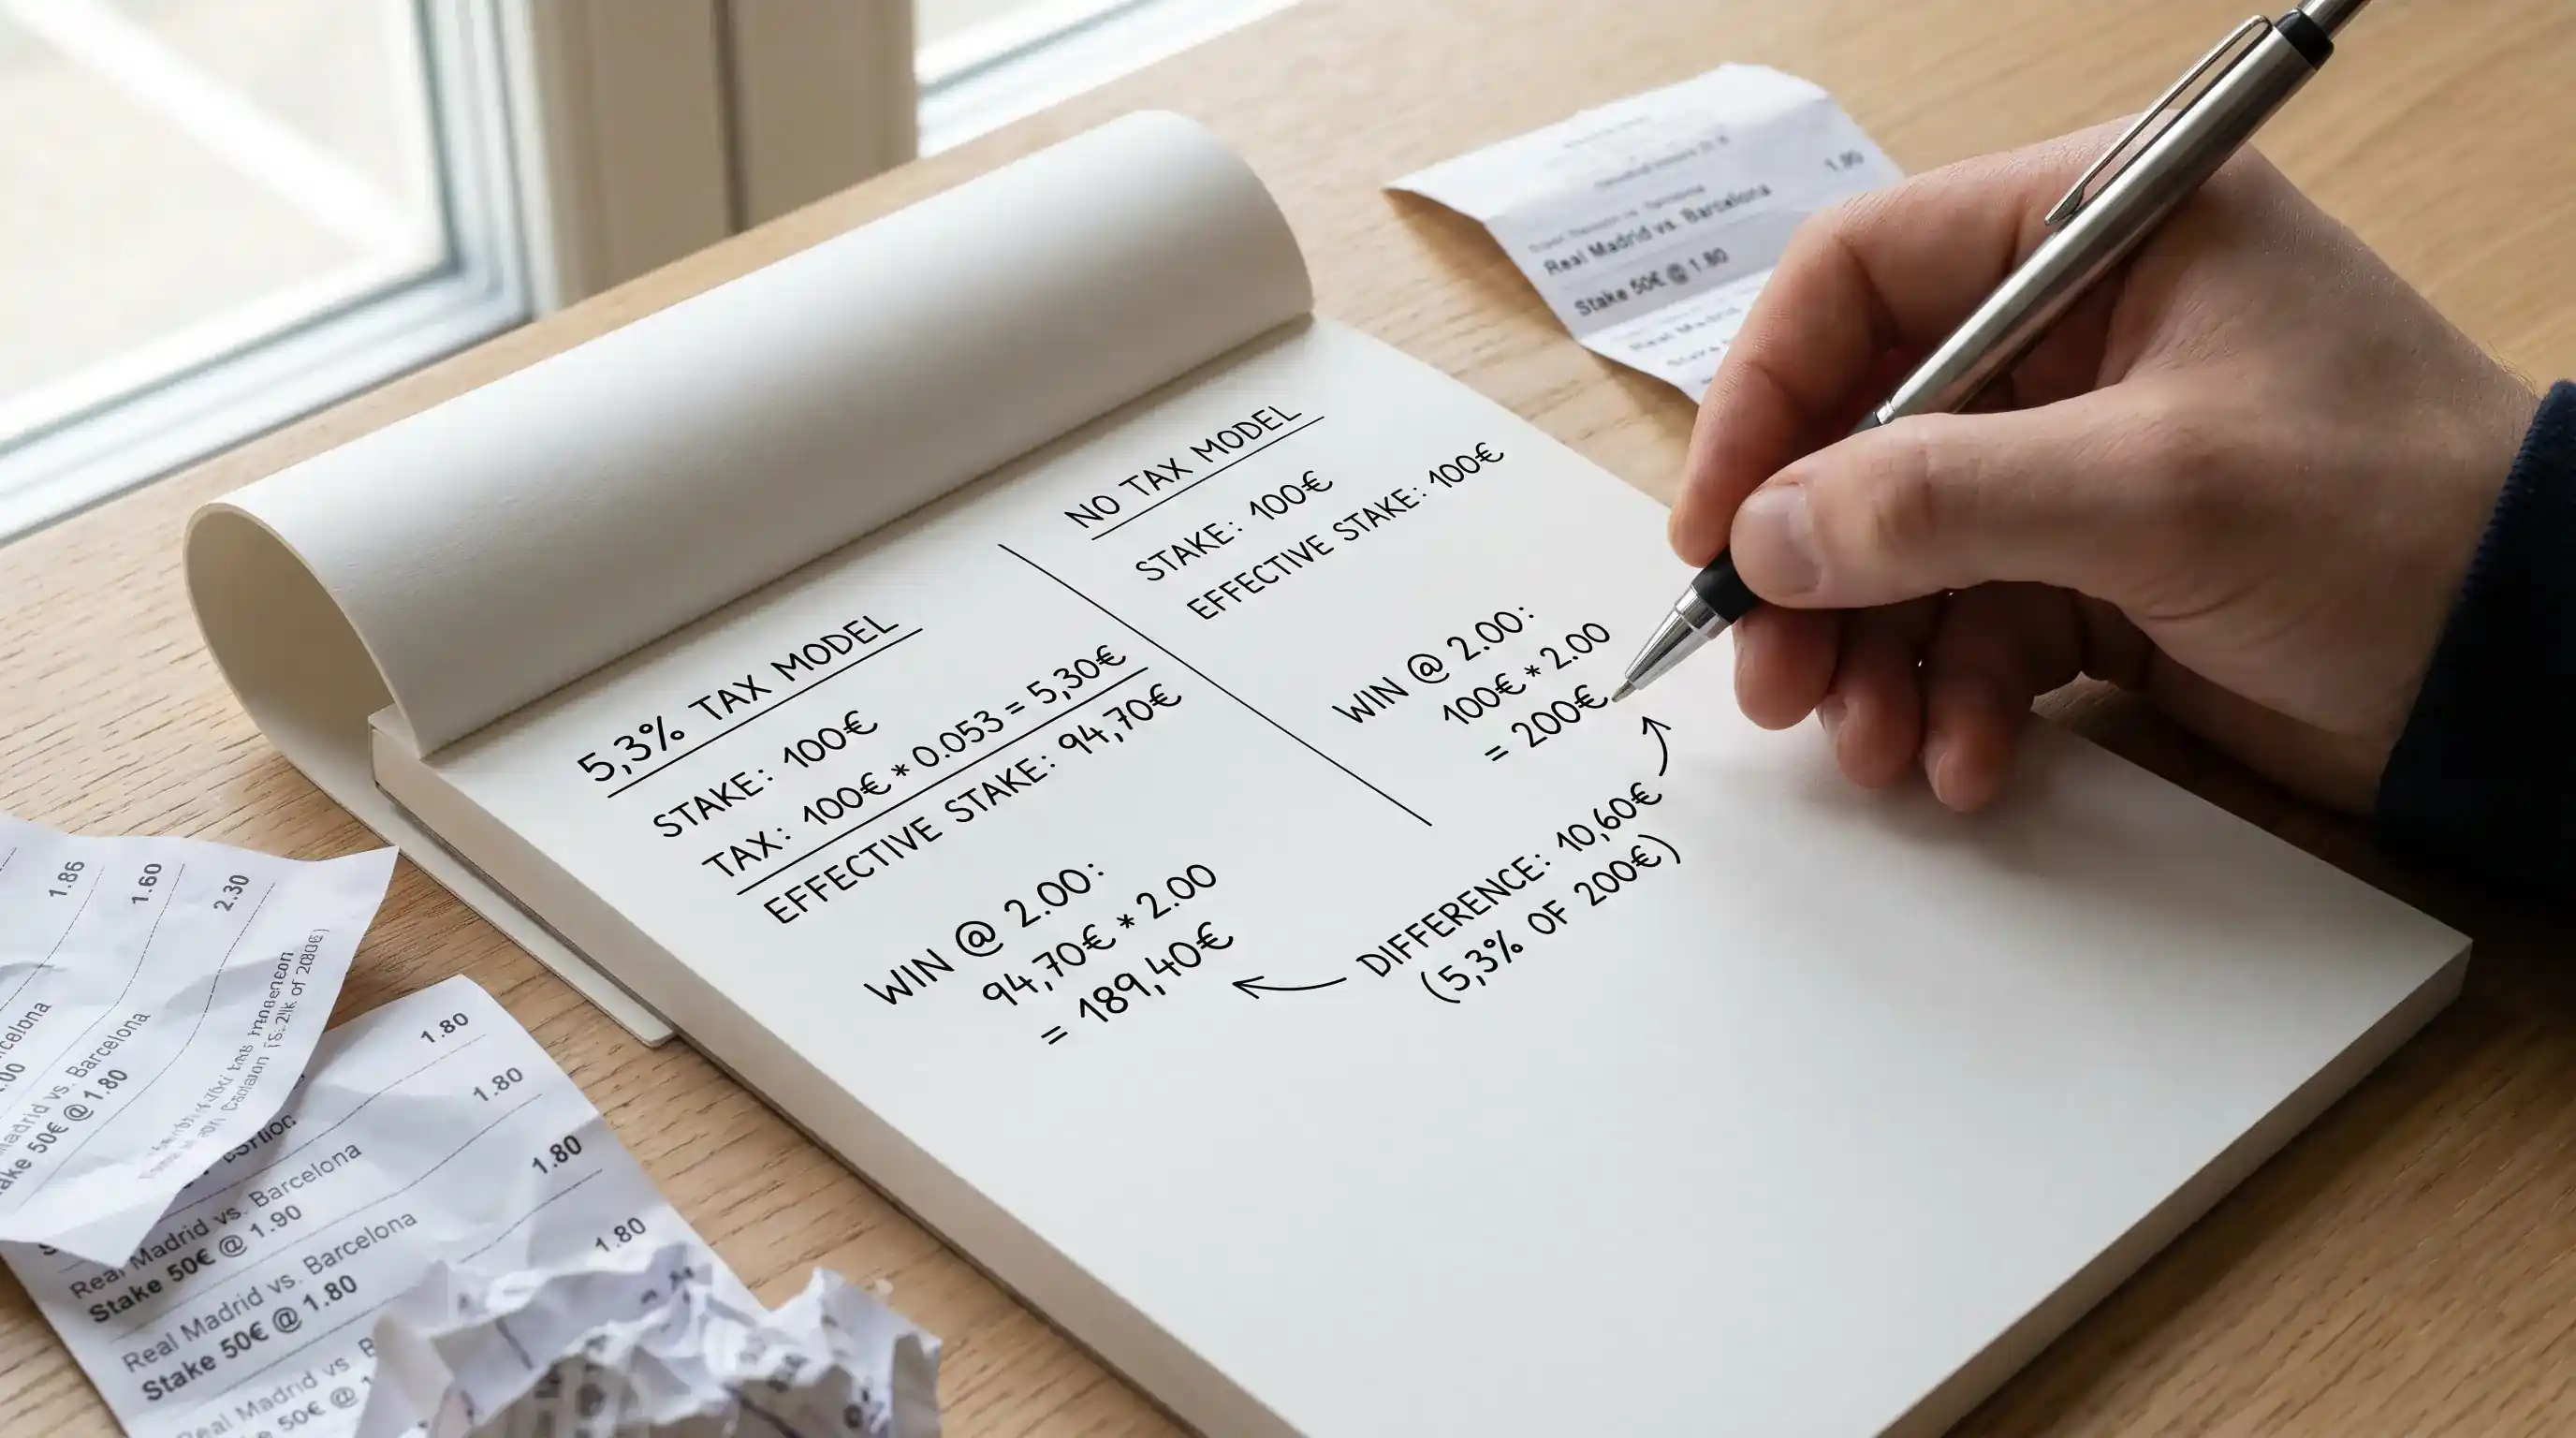 5,3% TAX MODEL
STAKE: 100€
TAX: 100€ * 0.053 = 5,30€
EFFECTIVE STAKE: 94,70€
WIN @ 2.00:
94,70€ * 2.00
= 189,40€
NO TAX MODEL
STAKE: 100€
EFFECTIVE STAKE: 100€
WIN @ 2.00:
100€ * 2.00
= 200€
DIFFERENCE: 10,60€
(5,3% OF 200€)
1.80
Real Madrid vs. Barcelona
Stake 50€ @ 1.80
1.86
1.60
2.30
vs. Barcelona
50€ @ 1.80
1.80
1.80
Real Madrid vs. Barcelona
1.80
Stake 50€ @ 1.90
Real Madrid vs. Barcelona
1.80
Stake 50€ @ 1.80
Madrid vs
50€ @